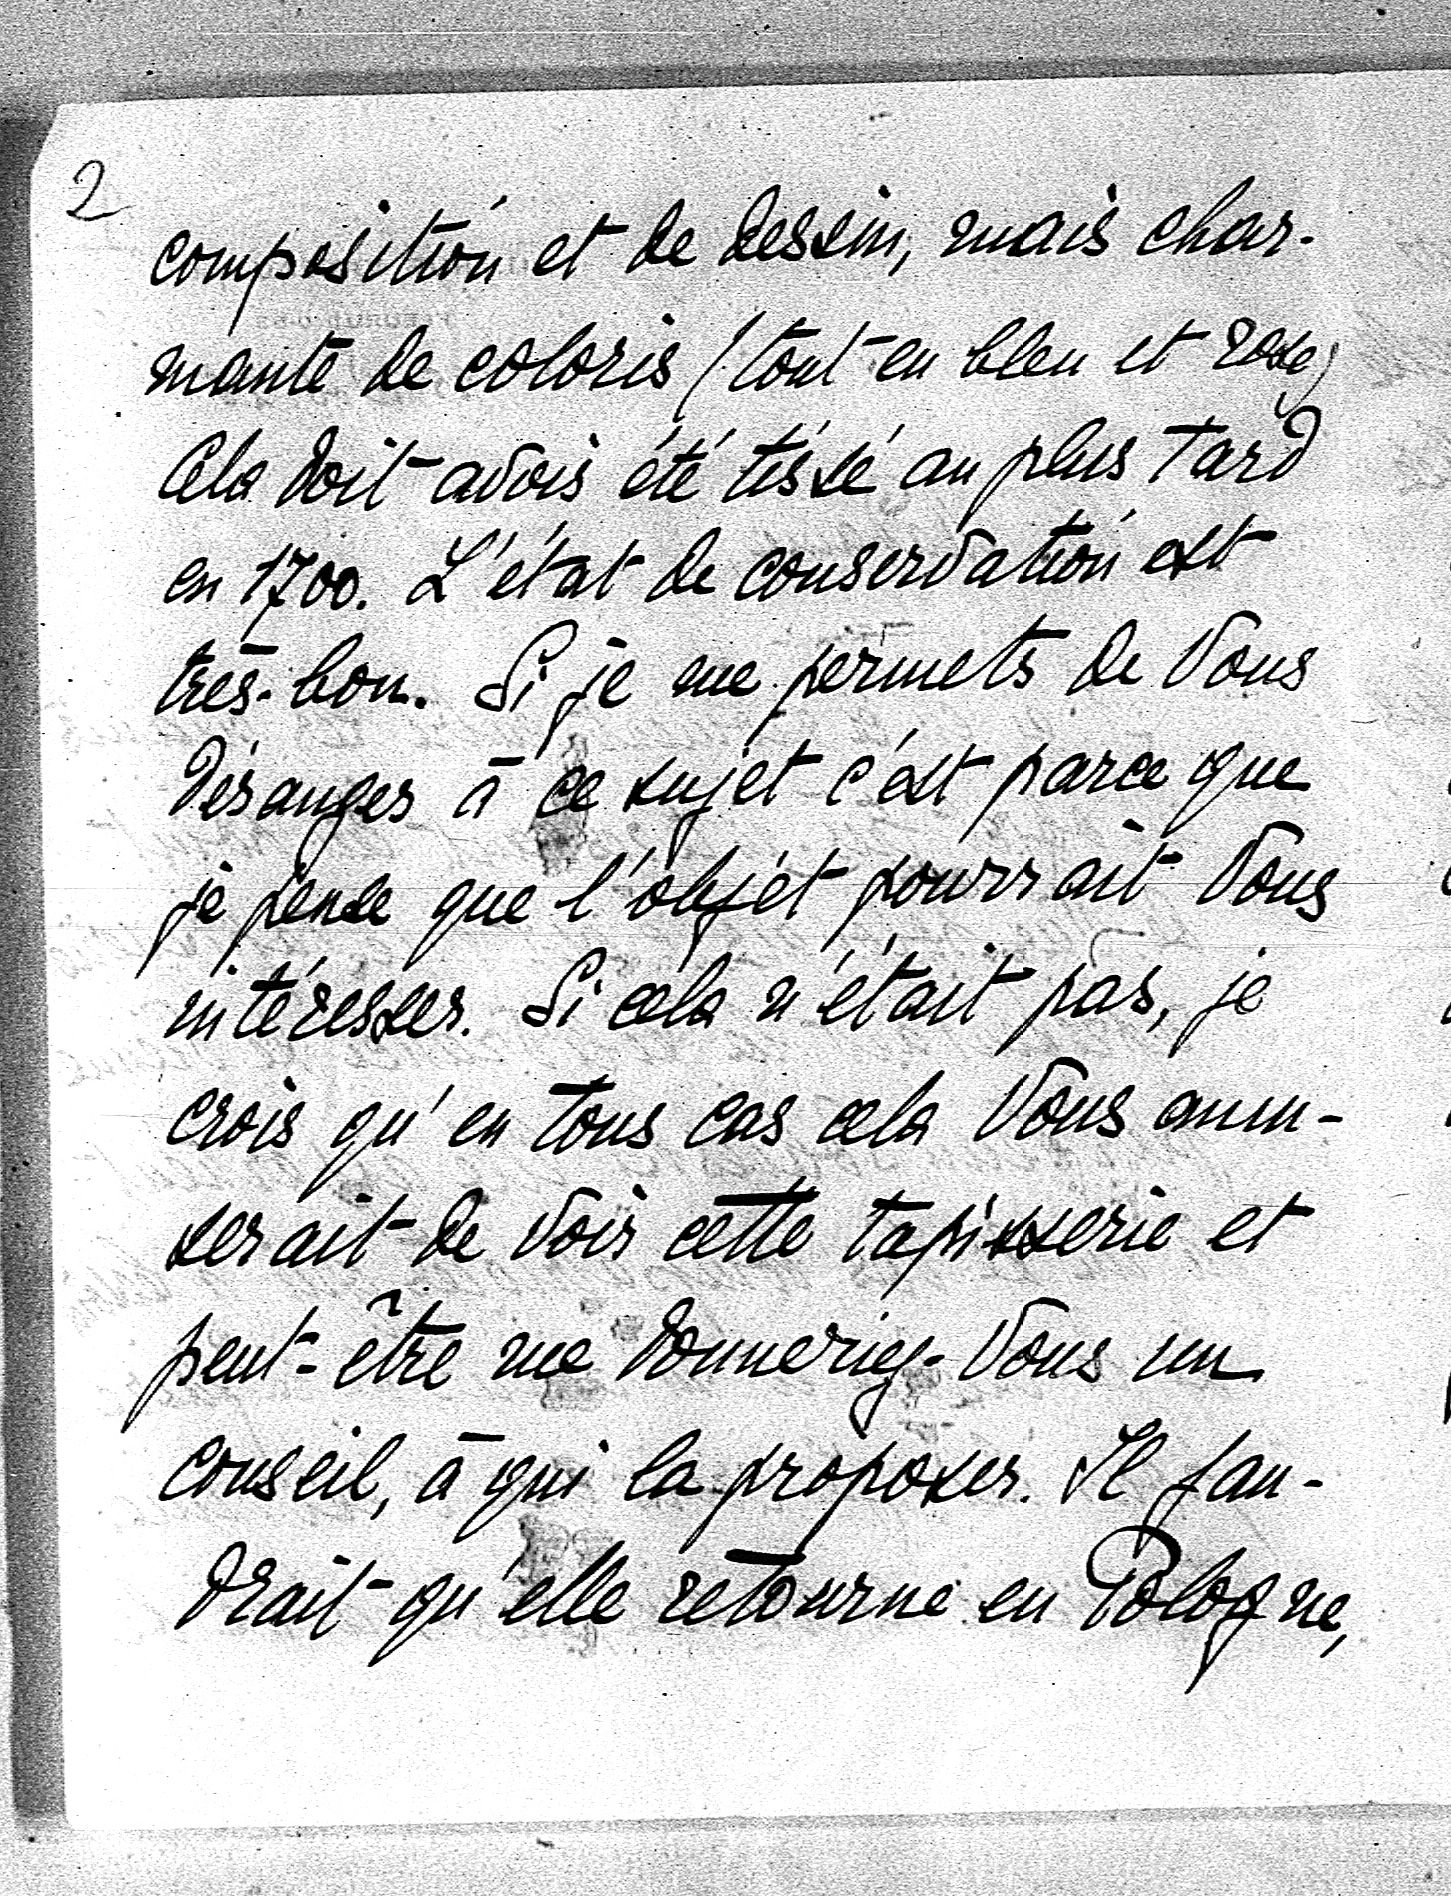 2
composition et de dessin, mais char-
mante de coloris (tout en bleu et rose)
Cela doit avoir été tissé au plus tard
en 1700. L'état de conservation est
très-bon. Si je me permets de Vous
déranger à ce sujet c'est parce que
je pense que l'objet pourrait Vous
intéresser. Si cela n'était pas, je
crois qu'en tous cas cela Vous amu-
serait de voir cette tapisserie et
peut-être me donneriez-Vous un
conseil, à qui la proposer. Il fau-
drait qu'elle retourne en Pologne,